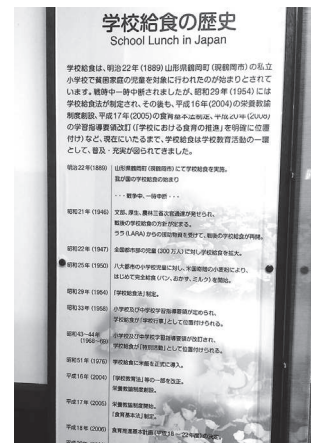 学校給食の歴史
School Lunch in Japan
学校給食は、明治22年(1889)山形県鶴岡町(現鶴岡市)の私立
小学校で貧困家庭の児童を対象に行われたのが始まりとされて
います。戦時中一時中断されましたが、昭和29年(1954)には
学校給食法が制定され、その後も、平成16年(2004)の栄養教諭
制度創設、平成17年(2005)の食育基本法制定、平成20年(2008)
の学習指導要領改訂(「学校における食育の推進」を明確に位置
付け)など、現在にいたるまで、学校給食は学校教育活動の一環
として、普及・充実が図られてきました。
明治22年(1889) 山形県鶴岡町(現鶴岡市)にて学校給食を実施。
我が国の学校給食の始まり
・・・戦争中、一時中断・・・
昭和21年(1946) 文部、厚生、農林三省次官通達が発せられ、
戦後の学校給食の方針が定まる。
ララ(LARA)からの援助物資を受けて、戦後の学校給食が再開。
昭和22年(1947) 全国都市部の児童(300万人)に対し学校給食を拡大。
昭和25年(1950) 八大都市の小学校児童に対し、米国寄贈の小麦粉により、
はじめて完全給食(パン、おかず、ミルク)を開始。
昭和29年(1954) 「学校給食法」制定。
昭和33年(1958) 小学校及び中学校学習指導要領が定められ、
学校給食が「学校行事」として位置付けられる。
昭和43〜44年 小学校及び中学校学習指導要領が改訂され、
(1968〜69) 学校給食が「特別活動」として位置付けられる。
昭和51年(1976) 学校給食に米飯を正式に導入。
平成16年(2004) 「学校教育法」等の一部を改正。
栄養教諭制度創設。
平成17年(2005) 栄養教諭制度開始。
「食育基本法」制定。
平成18年(2006) 食育推進基本計画(平成18〜22年度)決定。